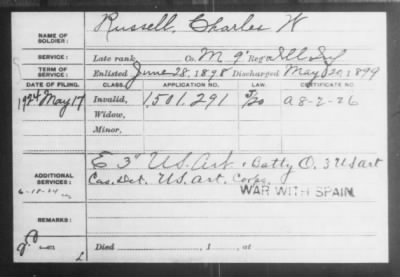 Russell, Charles W
NAME OF SOLDIER:
SERVICE: Late rank, Co. M 9" Reg't Ill Inf
TERM OF SERVICE: Enlisted June 28, 1898 Discharged May 20, 1899
DATE OF FILING. CLASS. APPLICATION NO. LAW. CERTIFICATE NO.
1924 May 17 Invalid, 1,501,291 A8-2-26
Widow,
Minor,
ADDITIONAL SERVICES: E 3" U.S. Art. & Batty O. 3 US art
Cas. Det. U.S. Art. Corps.
WAR WITH SPAIN
REMARKS:
Died , 1 , at